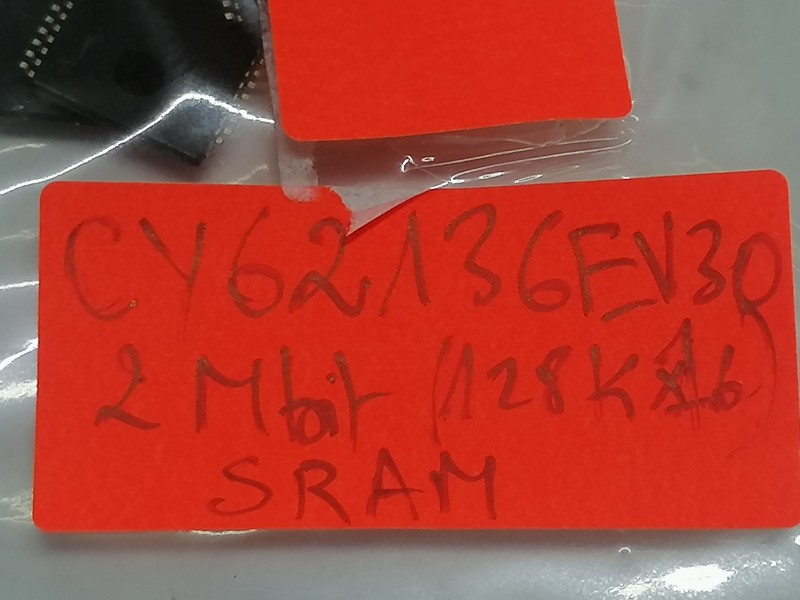 CY62136EV30
2 Mbit (128K x16)
SRAM